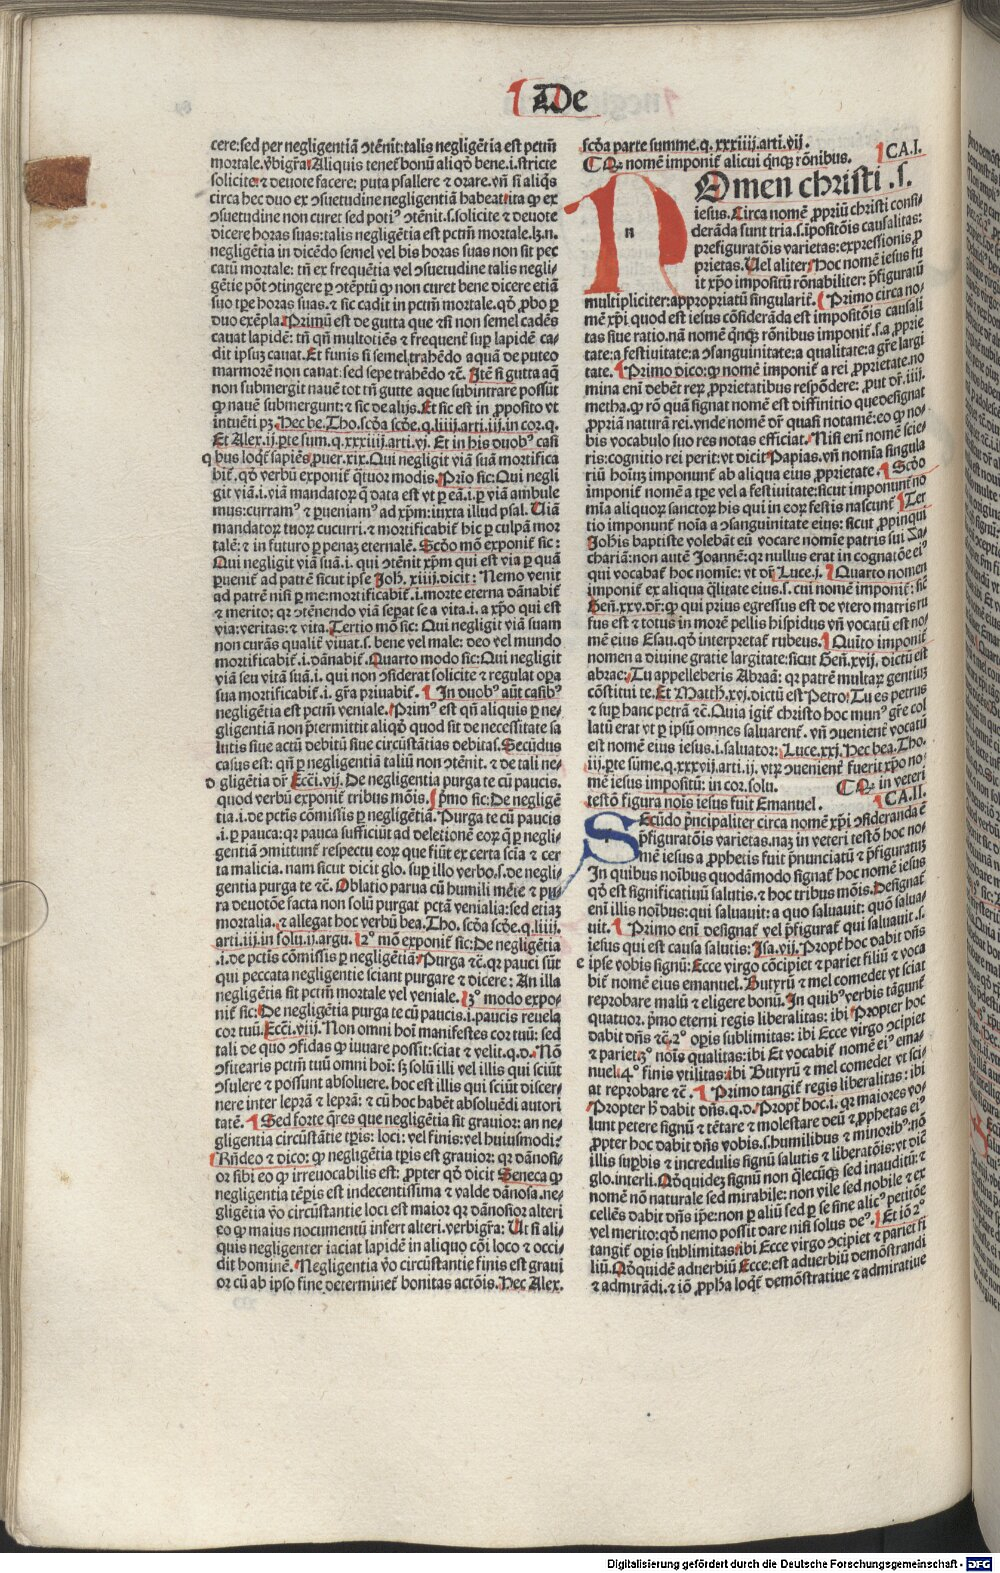 De
cere: sed per negligentiā ↄtēnit: talis negligētia est pctm̄
mortale. v̄bigr̄a: Aliquis tenet̄ bonū aliqđ bene .i. stricte
solicite ⁊ deuote facere: puta psallere ⁊ orare. vn̄ si aliq̄s
circa hec duo ex ↄsuetudine negligentiā habeat: ita ꝙ ex
ↄsuetudine non curet sed potiꝰ ↄtēnit .s. solicite ⁊ deuote
dicere horas suas: talis negligētia est pctm̄ mortale. lꝫ .n.
negligētia in dicēdo semel vel bis horas suas non sit pec
catū mortale: tn̄ ex frequētia vel ↄsuetudine talis negli⸗
gētie pōt ↄtingere ꝑ ↄtēptū ꝙ non curet bene dicere etiā
suo tꝑe horas suas. ⁊ sic cadit in pctm̄ mortale. qđ ꝓbo ꝑ
duo exēpla. Primū est de gutta que ⁊si non semel cadēs
cauat lapidē: tn̄ qn̄ multotiēs ⁊ frequent̄ suꝑ lapidē ca⸗
dit ipsuꝫ cauat. Et funis si semel trahēdo aquā de puteo
marmorē non cauat: sed sepe trahēdo ⁊c̄. Itē si gutta aq̄
non submergit nauē tot tn̄ gutte aque subintrare possūt
ꝙ nauē submergunt: ⁊ sic de alijs. Et sic est in ꝓposito vt
intuēti pꝫ. Hec be. Tho. scđa scđe. q. liiij. arti. iij. in cor. q.
Et Alex. ij. ꝑte sum. q. xxxiiij. arti. vj. Et in his duobꝰ casi
q bus loqt̄ sapiēs ꝓuer. xix. Qui negligit viā suā mortifica
bit̄. qđ verbū exponit̄ q̄tuor modis. Prio sic: Qui negli
git viā .i. viā mandatoꝝ q̄ data est vt ꝑ eā .i. ꝑ viā ambule
mus: curramꝰ ⁊ ꝑueniamꝰ ad xp̄m: iuxta illud psal. Uiā
mandatoꝝ tuoꝝ cucurri. ⁊ mortificabit̄ hic ꝑ culpā mor
talē: ⁊ in futuro ꝑ penaꝫ eternalē. Scđo mō exponit̄ sic:
Qui negligit viā suā .i. qui ↄtēnit xp̄m qui est via ꝑ quā
ꝑuenit̄ ad patrē sicut ipse Joh. xiiij. dicit: Nemo venit
ad patrē nisi ꝑ me: mortificabit̄ .i. morte eterna dānabit̄
⁊ merito: qꝛ ↄtēnendo viā sepat̄ se a vita .i. a xp̄o qui est
via: veritas: ⁊ vita. Tertio mō sic: Qui negligit viā suam
non curās qualit̄ viuat .s. bene vel male: deo vel mundo
mortificabit̄ .i. dānabit̄. Quarto modo sic: Qui negligit
viā seu vitā suā .i. qui non ↄsiderat solicite ⁊ regulat oꝑa
sua mortificabit̄ .i. gr̄a priuabit̄. In duobꝰ aūt casibꝰ
negligētia est pctm̄ veniale. Primꝰ est qn̄ aliquis ꝑ ne⸗
gligentiā non p̄termittit aliqđ quod sit de necessitate sa
lutis siue actū debitū siue circūstātias debitas. Secūdus
casus est: qn̄ ꝑ negligentia taliū non ↄtēnit. ⁊ de tali ne⸗
d gligētia dr̄ Ecci. vij. De negligentia purga te cū paucis.
quod verbū exponit̄ tribus mōis. p̄mo sic: De negligē
tia .i. de pctis cōmissis ꝑ negligētiā. Purga te cū paucis
.i. ꝑ pauca: qꝛ pauca sufficiūt ad deletionē eoꝝ q̄ ꝑ negli⸗
gentiā ↄmittunt̄ respectu eoꝝ que fiūt ex certa sciā ⁊ cer
ta malicia. nam sicut dicit glo. suꝑ illo verbo .s. de negli⸗
gentia purga te ⁊c̄. Oblatio parua cū humili mēte ⁊ pu⸗
ra deuotōe facta non solū purgat pctā venialia: sed etiaꝫ
mortalia. ⁊ allegat hoc verbū bea. Tho. scđa scđe. q. liiij.
arti. iij. in solu. ij. argu. 2º mō exponit̄ sic: De negligētia
.i. de pctis cōmissis ꝑ negligētiā: Purga ⁊c̄. qꝛ pauci sūt
qui peccata negligentie sciant purgare ⁊ dicere: An illa
negligētia sit pctm̄ mortale vel veniale. 3º modo expo⸗
nit̄ sic: De negligentia purga te cū paucis .i. paucis reuela
cor tuū. Ecci. viij. Non omni hoī manifestes cor tuū: sed
tali de quo ↄfidas ꝙ iuuare possit: sciat ⁊ velit. q.d. Nō
ↄfitearis pctm̄ tuū omni hoī: sꝫ solū illi vel illis qui sciūt
ↄsulere ⁊ possunt absoluere. hoc est illis qui sciūt discer⸗
nere inter leprā ⁊ leprā: ⁊ cū hoc habēt absoluēdi autori
tatē. Sed forte q̄res que negligētia sit grauior: an ne⸗
gligentia circūstātie tp̄is: loci: vel finis: vel huiusmodi?
Rn̄deo ⁊ dico: ꝙ negligētia tp̄is est grauior: qꝛ dānosi⸗
or sibi eo ꝙ irreuocabilis est: ꝓpter qđ dicit Seneca ꝙ
negligentia tēꝑis est indecentissima ⁊ valde dānosa. ne⸗
gligētia v̄o circūstantie loci est maior qꝛ dānosior alteri
eo ꝙ maius nocumentū infert alteri. verbigr̄a: Ut si ali⸗
quis negligenter iaciat lapidē in aliquo cōi loco ⁊ occi⸗
dit hominē. Negligentia v̄o circūstantie finis est graui
or cū ab ipso fine determinet̄ bonitas actōis. Hec Alex.
scđa parte summe. q. xxxiiij. arti. vij.
CA. I.
Q nomē imponit̄ alicui q̄nqꝫ rōnibus.
n
Omen christi .s.
iesus. Circa nomē ꝓpriū christi consi⸗
derāda sunt tria .s. īpositōis causalitas:
prefiguratōis varietas: expressionis ꝓ
prietas. Uel aliter: Hoc nomē iesus fu
it xp̄o impositū rōnabiliter: p̄figuratū
multipliciter: appropriatū singularit̄. Primo circa no⸗
mē xp̄i quod est iesus cōsiderāda est impositōis causali
tas siue ratio. nā nomē q̄nqꝫ rōnibus imponit̄ .s. a ꝓprie
tate: a festiuitate: a ↄsanguinitate: a qualitate: a gr̄e largi
tate. Primo dico: ꝙ nomē imponit̄ a rei ꝓprietate. no
mina eni debēt reꝝ ꝓprietatibus respōdere: put dr̄ .iiij.
metha. ꝙ rō quā signat nomē est diffinitio que designat
ꝓpriā naturā rei. vnde nomē dr̄ quasi notamē: eo ꝙ no⸗
bis vocabulo suo res notas efficiat. Nisi eni nomē scie⸗
ris: cognitio rei perit: vt dicit Papias. vn̄ nomīa singula
riū hoīm imponunt̄ ab aliqua eius ꝓprietate. Scđo
imponit̄ nomē a tꝑe vel a festiuitate: sicut imponunt̄ no
mīa aliquoꝝ sanctoꝝ his qui in eoꝝ festis nascunt̄. Ter
tio imponunt̄ noīa a ↄsanguinitate eius: sicut ꝓpinqui
Johis baptiste volebāt eū vocare nomīe patris sui Za⸗
chariā: non autē Joannē: qꝛ nullus erat in cognatōe eiꝰ
qui vocabat̄ hoc nomīe: vt dr̄ Luce. j. Quarto nomen
imponit̄ ex aliqua q̄litate eius .s. cui nomē imponit̄: sic̄
Gen̄. xxv. dr̄: ꝙ qui prius egressus est de vtero matris ru
fus est ⁊ totus in morē pellis hispidus vn̄ vocatū est no⸗
mē eius Esau. qđ interpretat̄ rubeus. Quīto imponit̄
nomen a diuine gratie largitate: sicut Gen̄. xvij. dictū est
abrae: Tu appelleberis Abraā: qꝛ patrē multaꝝ gentiuꝫ
cōstitui te. Et Matth. xvj. dictū est Petro: Tu es petrus
⁊ suꝑ hanc petrā ⁊c̄. Quia igit̄ christo hoc munꝰ gr̄e col
latū erat vt ꝑ ipsū omnes saluarent̄. vn̄ ↄuenient̄ vocatū
est nomē eius iesus .i. saluator: Luce. xxj. Hec bea. Tho.
iij. ꝑte sume. q. xxxvij. arti. ij. vtꝝ ↄuenient̄ fuerit xp̄o no⸗
mē iesus impositū: in cor. solu. Q in veteri
testō figura nois iesus fuit Emanuel. CA. II.
SEcūdo p̄ncipaliter circa nomē xp̄i ↄsideranda ē
p̄figuratōis varietas. naꝫ in veteri testō hoc no⸗
mē iesus a ꝓphetis fuit p̄nunciatū ⁊ p̄figuratuꝫ
In quibus noibus quodāmodo signat̄ hoc nomē iesus
qđ est significatiuū salutis. ⁊ hoc tribus mōis. Designat̄
eni illis noibus: qui saluauit: a quo saluauit: quō salua⸗
uit. Primo eni designat̄ vel p̄figurat̄ qui saluauit .s.
iesus qui est causa salutis: Isa. vij. Propt̄ hoc dabit dn̄s
e ipse vobis signū: Ecce virgo cōcipiet ⁊ pariet filiū ⁊ voca
bit̄ nomē eius emanuel. Butyrū ⁊ mel comedet vt sciat
reprobare malū ⁊ eligere bonū. In quibꝰ verbis tāgunt̄
quatuor. p̄mo eterni regis liberalitas: ibi Propter hoc
dabit dn̄s ⁊c̄. 2º oꝑis sublimitas: ibi Ecce virgo ↄcipiet
⁊ pariet. 3º nōis qualitas: ibi Et vocabit̄ nomē eiꝰ ema⸗
nuel. 4º finis vtilitas: ibi Butyrū ⁊ mel comedet vt sci⸗
at reprobare ⁊c̄. Primo tangit̄ regis liberalitas: ibi
Propter h̄ dabit dn̄s. q.d. Propt̄ hoc .i. qꝛ maiores vo⸗
lunt petere signū ⁊ tētare ⁊ molestare deū ⁊ ꝓphetas eiꝰ
ꝓpter hoc dabit dn̄s vobis .s. humilibus ⁊ minoribꝰ: nō
illis suꝑbis ⁊ incredulis signū salutis ⁊ liberatōis: vt dic̄
glo. interli. Nō quidēꝫ signū non q̄lecūqꝫ sed inauditū: ⁊
nomē nō naturale sed mirabile: non vile sed nobile ⁊ ex
cellēs dabit dn̄s ipe: non ꝑ aliū sed ꝑ se sine alicꝰ petitōe
vel merito: qđ nemo possit dare nisi solus deꝰ. Et iō 2º
tangit̄ oꝑis sublimitas: ibi Ecce virgo ↄcipiet ⁊ pariet fi
liū. Nō quidē aduerbiū Ecce: est aduerbiū demōstrandi
⁊ admirādi. ⁊ iō ꝓpha loqt̄ demōstratiue ⁊ admiratiue
Digitalisierung gefördert durch die Deutsche Forschungsgemeinschaft - DFG